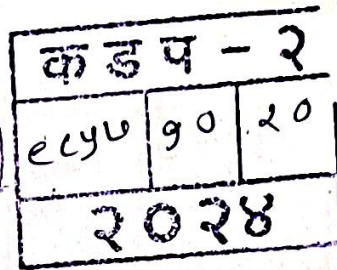 कडप - २
९८५७ १० २०
२०२४